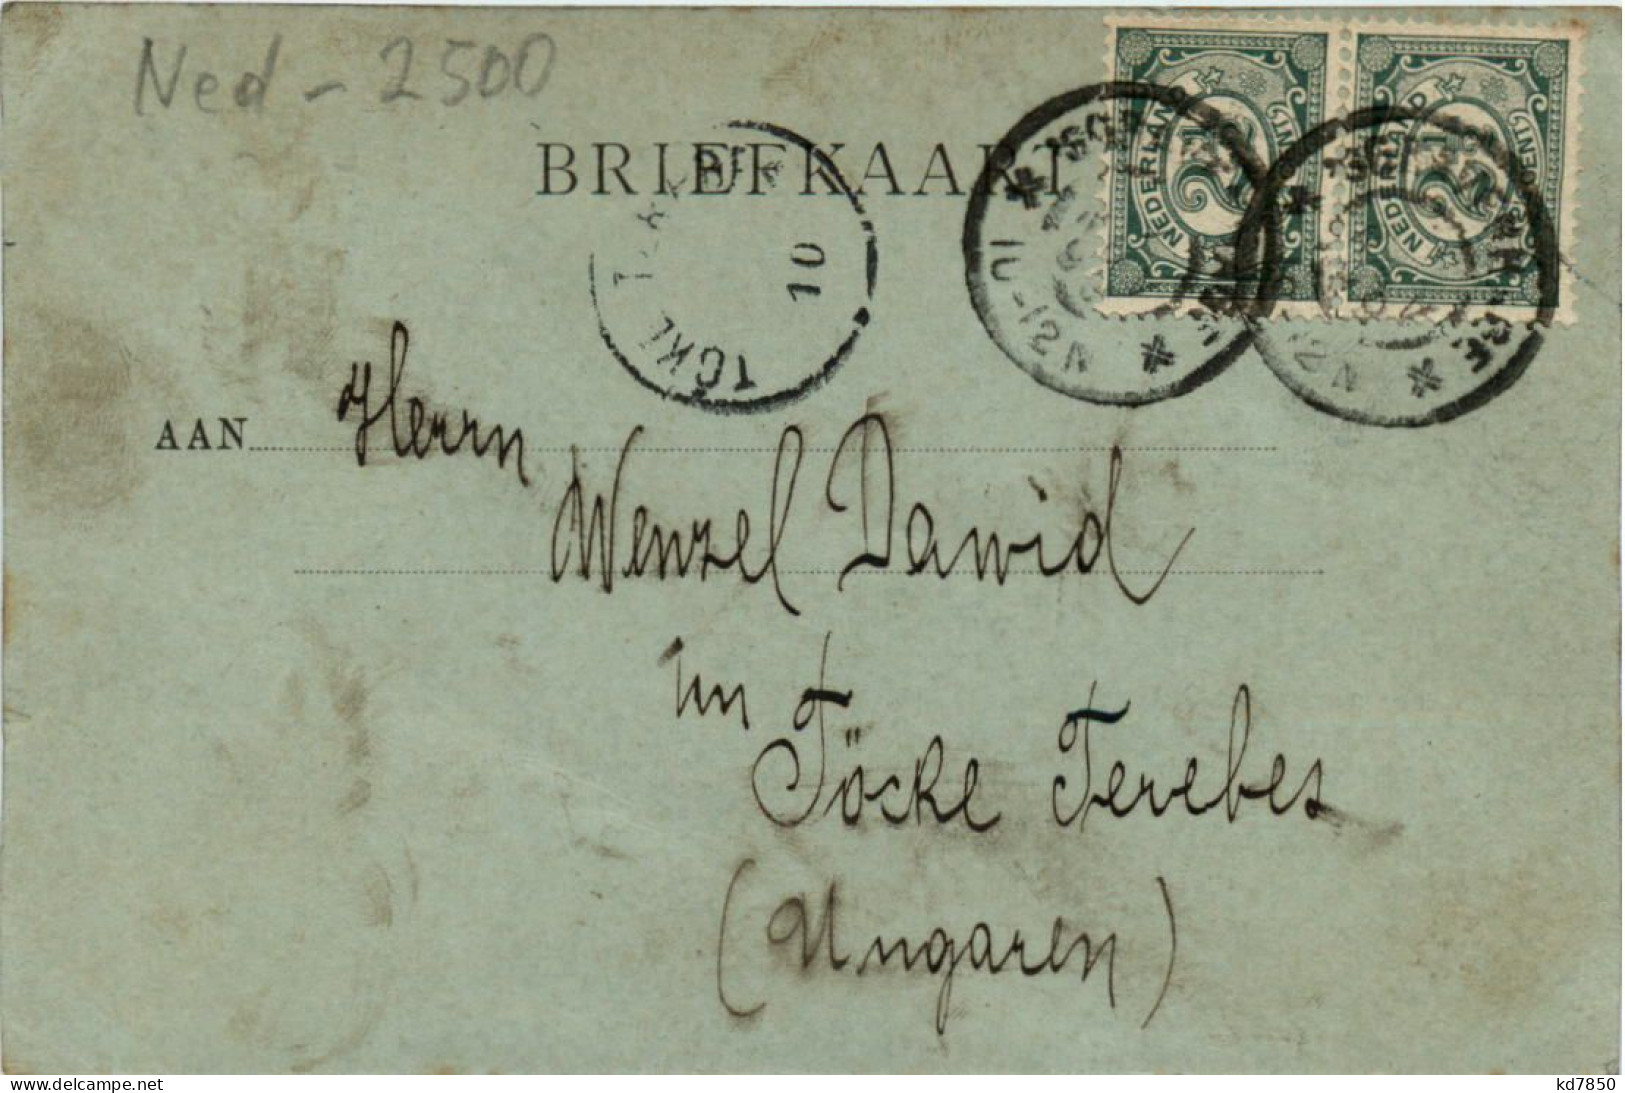 Ned - 2500
BRIEFKAART
NEDERLAND 2½ CENT
NEDERLAND 2½ CENT
10-12 N
10
AAN Herrn
Wenzel Dawid
in
Töcke Terebes
(Ungaren)
kd7850
www.delcampe.net